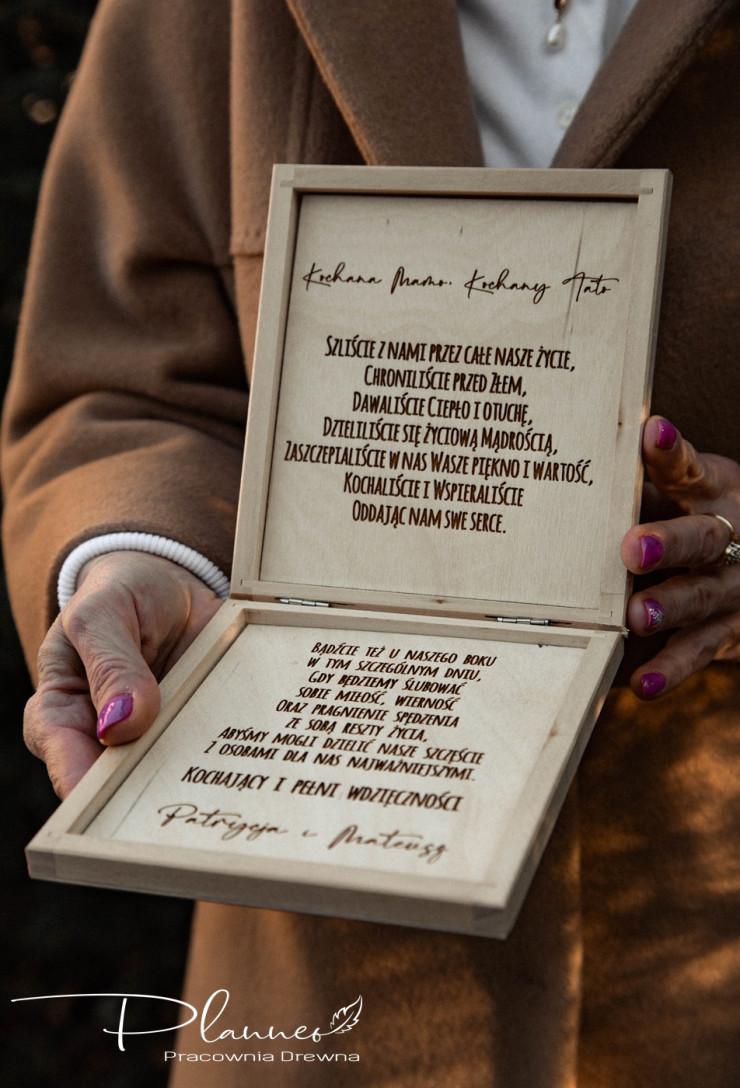 Kochana Mamo, Kochany Tato
SZLIŚCIE Z NAMI PRZEZ CAŁE NASZE ŻYCIE,
CHRONILIŚCIE PRZED ZŁEM,
DAWALIŚCIE CIEPŁO I OTUCHĘ,
DZIELILIŚCIE SIĘ ŻYCIOWĄ MĄDROŚCIĄ,
ZASZCZEPIALIŚCIE W NAS WASZE PIĘKNO I WARTOŚĆ,
KOCHALIŚCIE I WSPIERALIŚCIE
ODDAJĄC NAM SWE SERCE.
BĄDŹCIE TEŻ U NASZEGO BOKU
W TYM SZCZEGÓLNYM DNIU,
GDY BĘDZIEMY ŚLUBOWAĆ
SOBIE MIŁOŚĆ, WIERNOŚĆ
ORAZ PRAGNIENIE SPĘDZENIA
ZE SOBĄ RESZTY ŻYCIA,
ABYŚMY MOGLI DZIELIĆ NASZE SZCZĘŚCIE
Z OSOBAMI DLA NAS NAJWAŻNIEJSZYMI.
KOCHAJĄCY I PEŁNI WDZIĘCZNOŚCI
Patrycja i Mateusz
Planneo
Pracownia Drewna